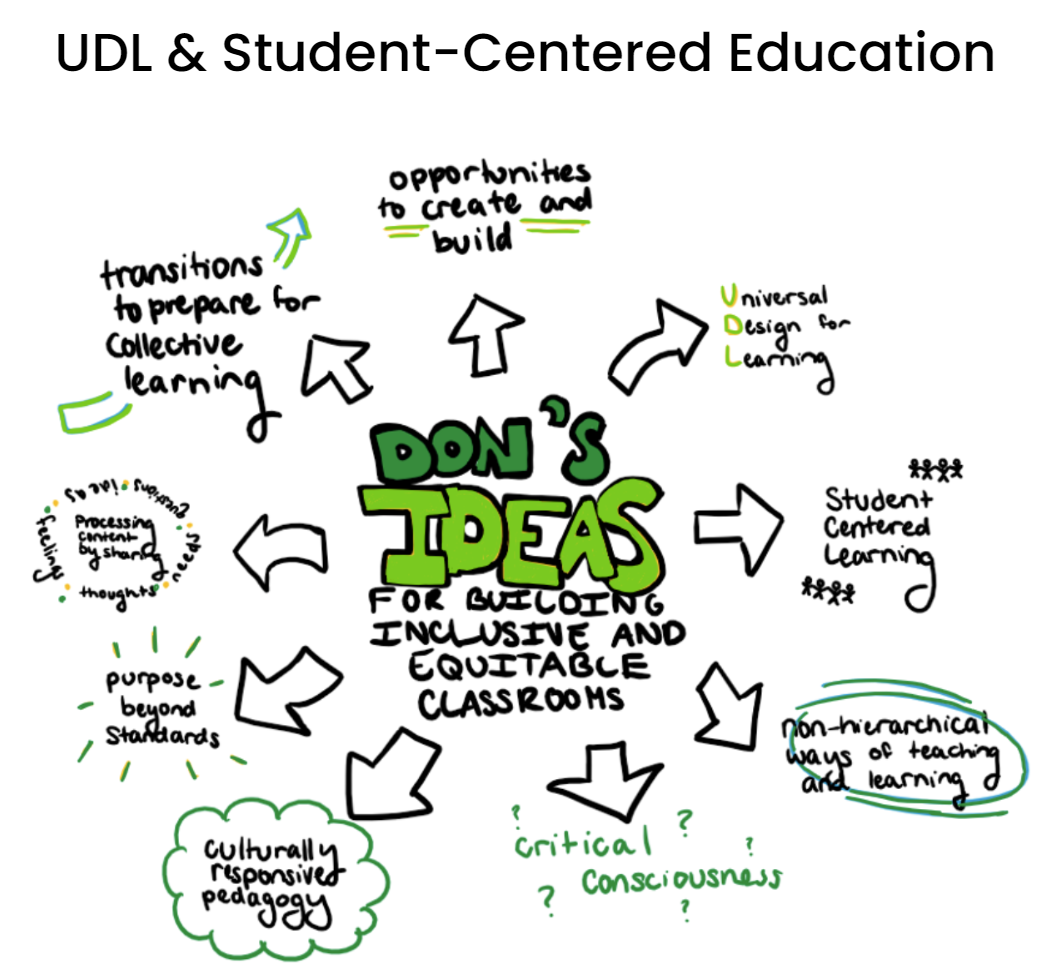 UDL & Student-Centered Education
opportunities
to create and
build
transitions
to prepare for
collective
learning
Universal
Design for
Learning
DON'S
IDEAS
FOR BUILDING
INCLUSIVE AND
EQUITABLE
CLASSROOMS
Student
Centered
Learning
non-hierarchical
ways of teaching
and learning
critical
consciousness
? ? ? ? ?
culturally
responsive
pedagogy
purpose
beyond
Standards
Processing
content
by sharing
feelings
ideas
questions
needs
thoughts